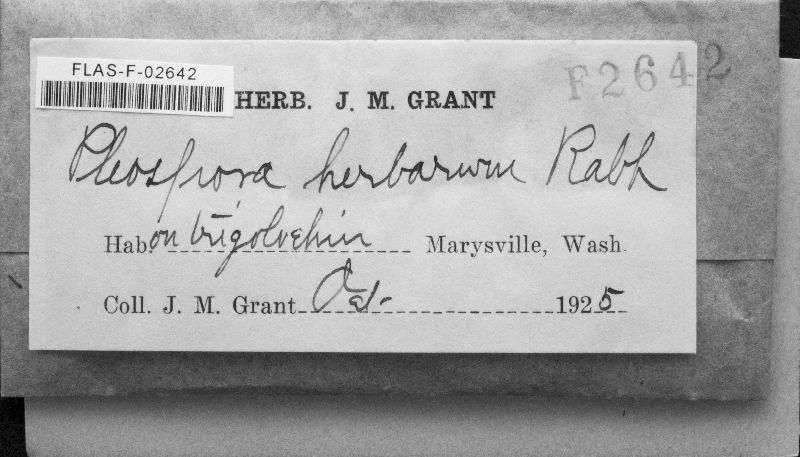 FLAS-F-02642
F2642
HERB. J. M. GRANT
Pleospora herbarum Rabh
Hab. on Marysville, Wash.
Coll. J. M. Grant Oct- 1925